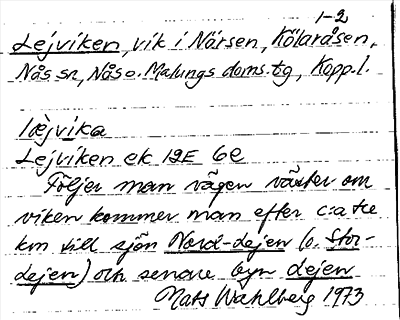 1-2
Lejviken, vik i Närsen, Kölaråsen,
Nås sn, Nås o. Malungs doms.tg, Kopp.l.
læ̀jvika
Lejviken ek 12E 6e
Följer man vägen väster om
viken kommer man efter c:a tre
km till sjön Nord-dejen (o. Stor-
dejen) och senare byn dejen
Mats Wahlberg 1973